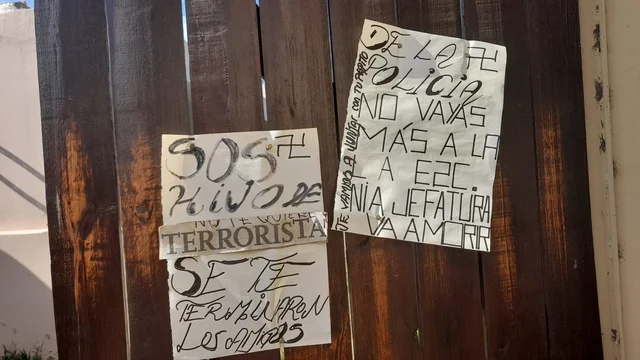 SOS 卐
HIJO DE
NO TE QUIERE
TERRORISTA
SE TE
TERMINARON
LOS AMIGOS
DE LA 卐
POLICIA
NO VAYAS
MAS A LA
NI A JEFATURA
VA A MORIR
TE VAMOS A JUNTAR CON TU PAPITO